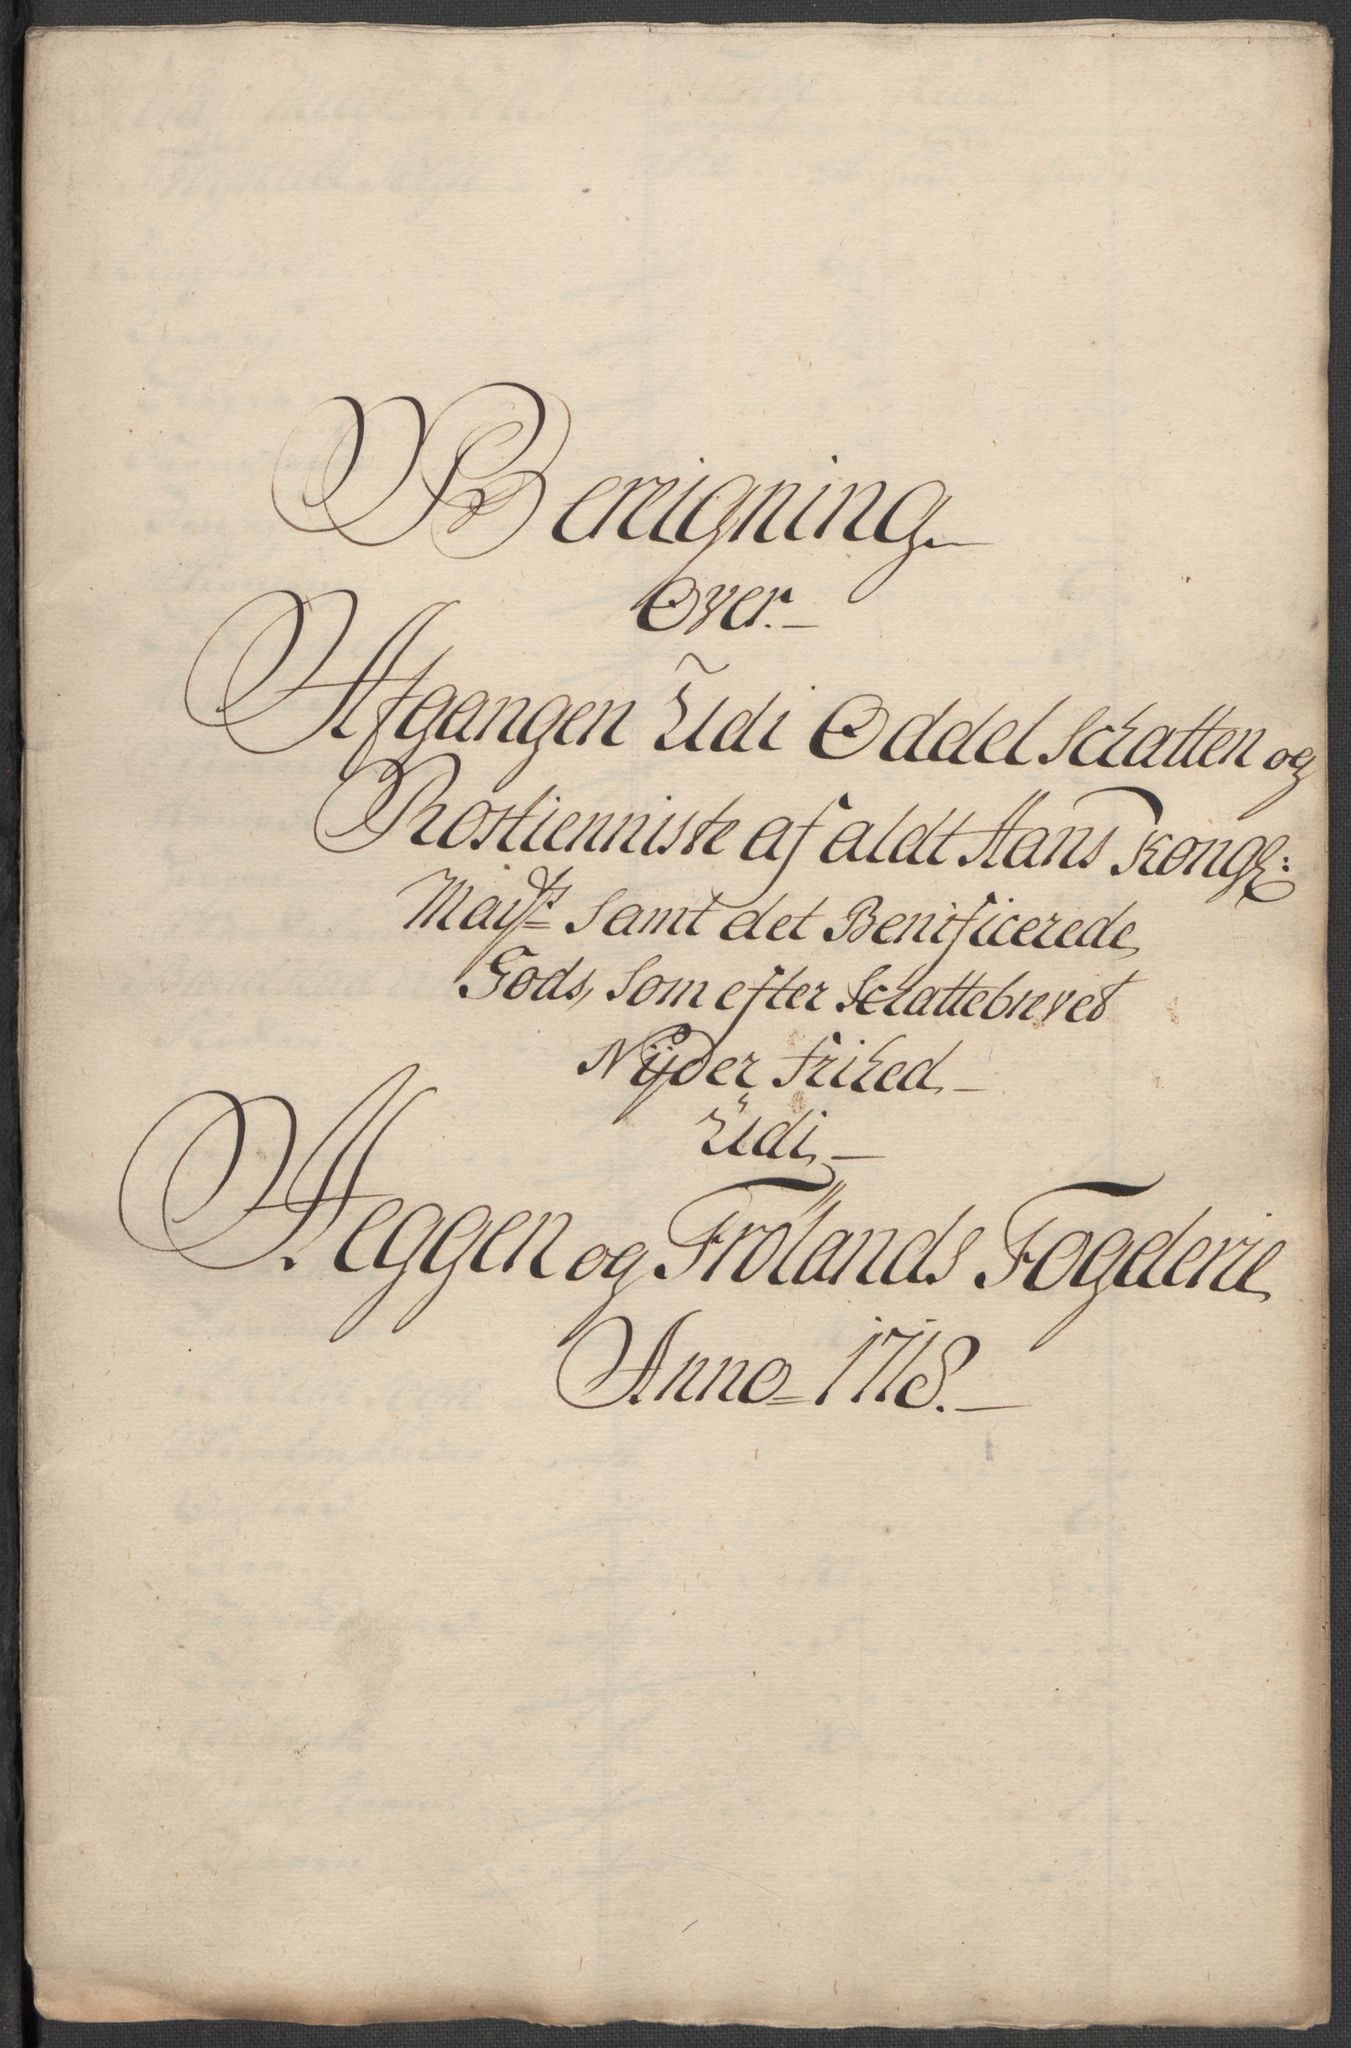 Bereigning
Over.
Afgangen Udi Oddel Schatten og
Rostienniste af aldt Hans Kongl:
Mayts Samt det Benificerede
Gods, Som efter Schattebrevet
Nÿder Frihed
Udi
Heggen og Frölands Fogderie
Anno 1718.